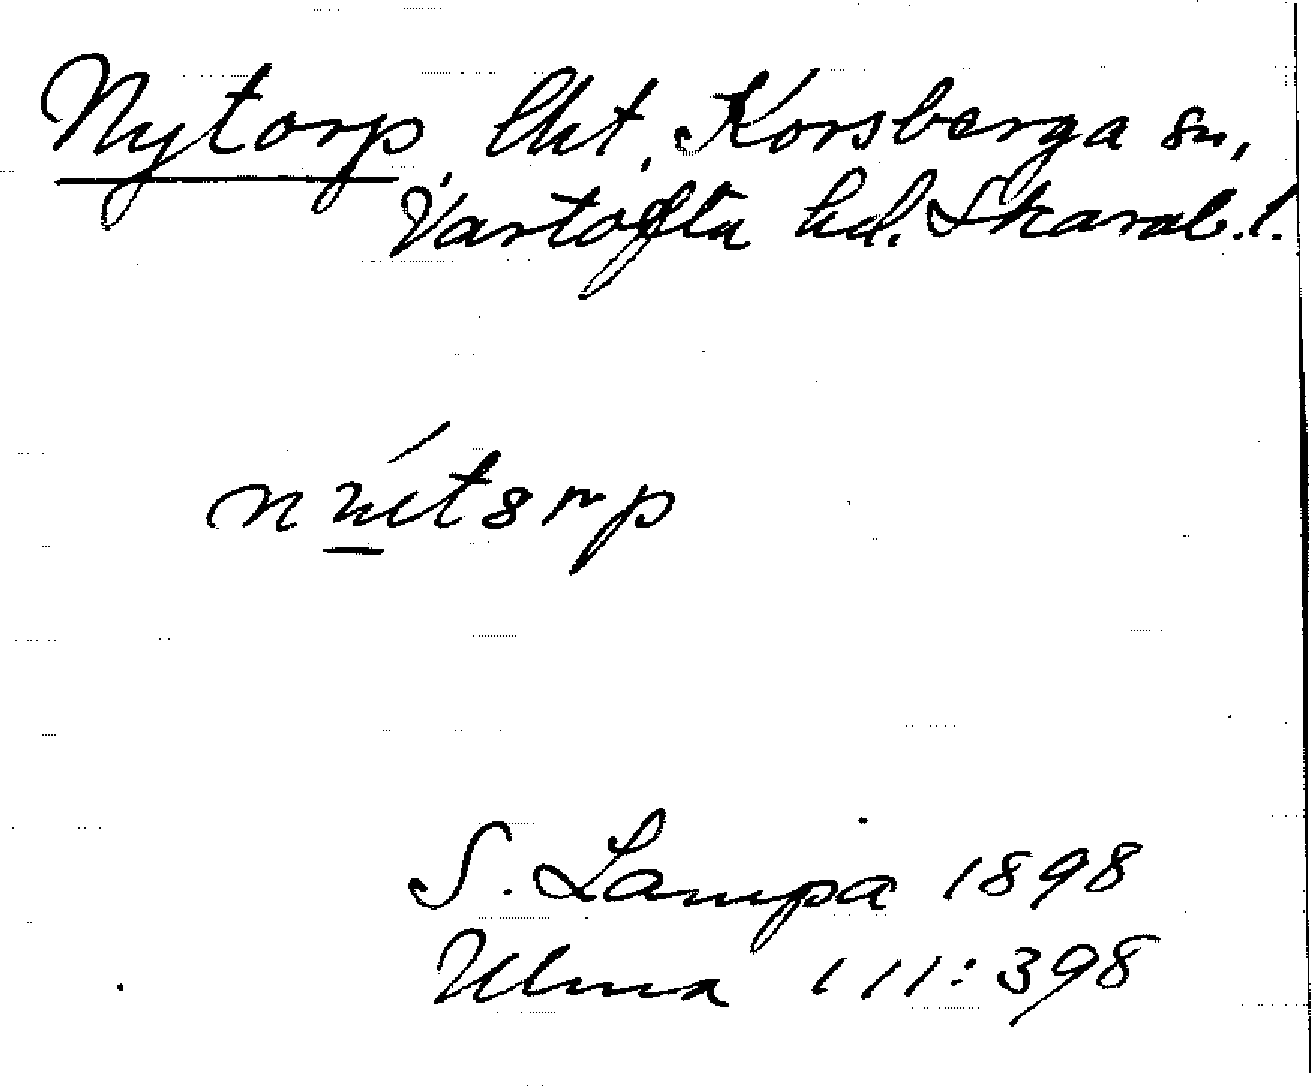 Nytorp, lht, Korsberga sn,
Vartofta hd. Skarab. l.
S. Lampa 1898
Ulma 111:398